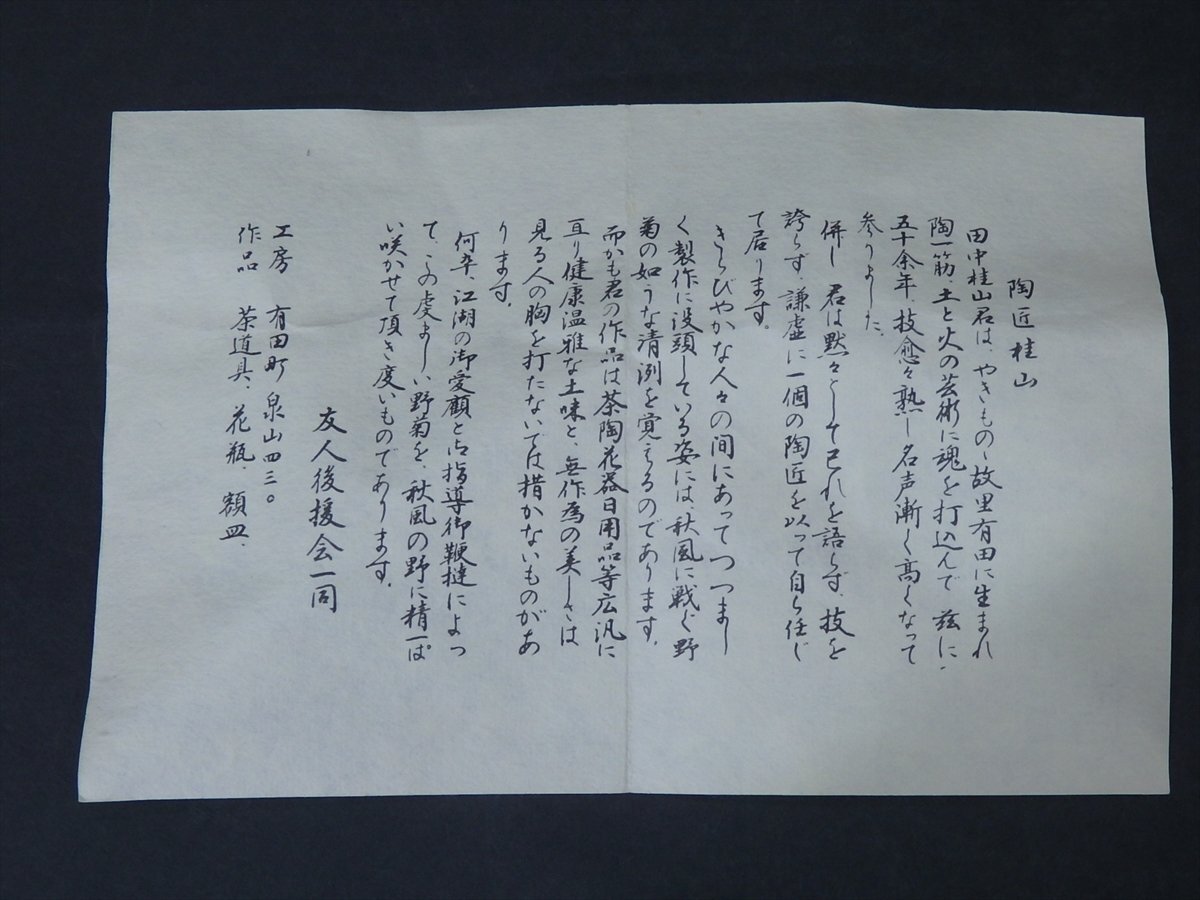 陶匠桂山
田中桂山君は、やきものゝ故里有田に生まれ
陶一筋、土と火の芸術に魂を打込んで 茲に、
五十余年、技愈々熟し名声漸く高くなって
参りました。
併し 君は黙々として己れを語らず、技を
誇らず、謙虚に一個の陶匠を以って自ら任じ
て居ります。
きらびやかな人々の間にあってつつまし
く製作に没頭している姿には、秋風に戦ぐ野
菊の如うな清洌を覚えるのであります。
而かも君の作品は茶陶花器日用品等広汎に
亘り健康温雅な土味と、無作為の美しさは
見る人の胸を打たないでは措かないものがあ
ります。
何卒、江湖の御愛顧と御指導御鞭撻によっ
て、この虔ましい野菊を、秋風の野に精一ぱ
い咲かせて頂き度いものであります。
友人後援会一同
工房 有田町 泉山四三〇
作品 茶道具、花瓶、額皿、